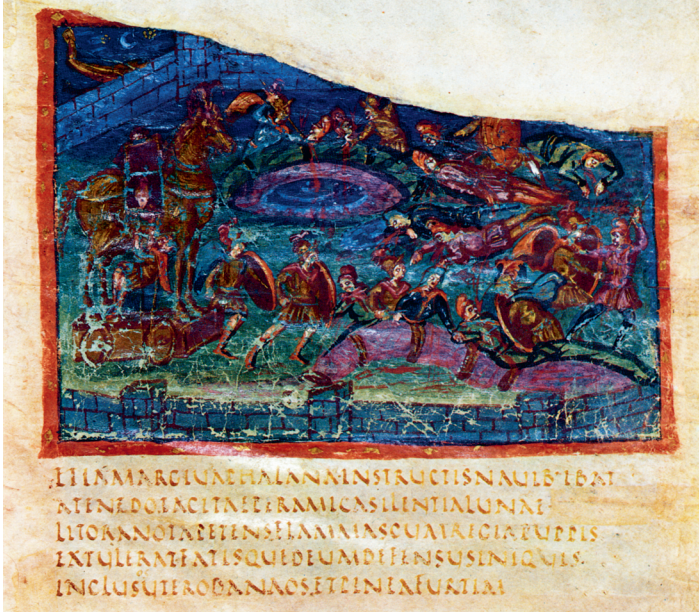 ETIAMARGIVAPHALANXINSTRUCTISNAVIB·IBAT
ATENEDOTACITAEPERAMICASILENTIALUNAE
LITORANOTAPETENSFLAMMASCUMREGIAPUPPIS
EXTULERATFATISQUEDEUMDEFENSUSINIQUIS·
INCLUSUTERODANAOS·ETPINEAFURTIM